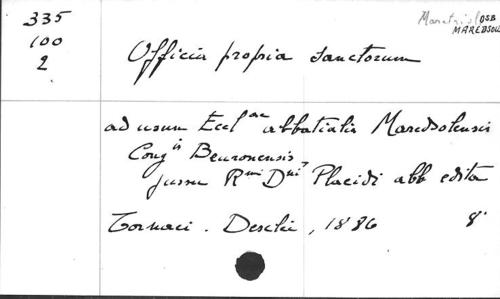 335
100
2
OSB
MAREDSOU
Officia propria sanctorum
ad usum Eccl^ae abbatialis Maredsolensis
Cong^is Beuronensis
jussu R^mi D^ni Placidi abb edita
Tornaci. Desclée, 1886 8°